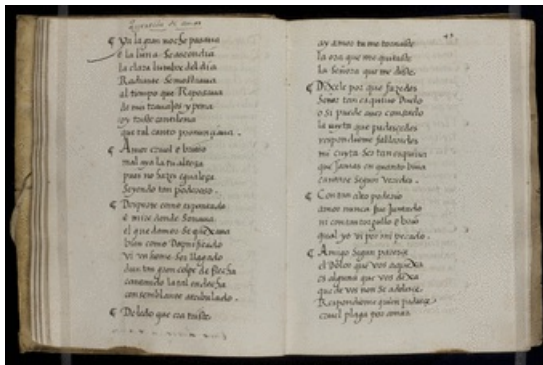 Ya la gran noche passaua
e la luna se ascendia
la clara lumbre del dia
Radiante se mostraua
al tiempo que Reposaua
de mis trauajos y pena
oy triste cantilena
que tal cantar pronunçiaua.
¶ Amor cruel e brioso
mal aya la tu alteza
pues no hazes igualeza
seyendo tan poderoso.
¶ Desperté como espantado
e miré donde sonaua
el que damor se quexaua
bien como
vi vn home ser llagado
dun tan gran golpe de flecha
cantando la tal endecha
con semblante atribulado.
¶ De ledo que era triste
43
ay amor tu me tornaste
la ora que me quitaste
la señora que me diste.
¶ Dixele por que fazedes
señor tan esquiuo duelo
o si puede auer consuelo
la cuyta que padescedes
respondiome fallaredes
mi cuyta ser tan esquiua
que jamas en quanto biua
cantare segun veredes.
¶ Con tan alto poderio
amor nunca fue juntado
ni con tan orgullo e brio
qual yo vi por mi pecado.
¶ Amigo segun paresçe
el dolor que vos aquexa
es alguna que vos dexa
que de vos non se adolesçe
Respondiome quien padesçe
cruel plaga por amar